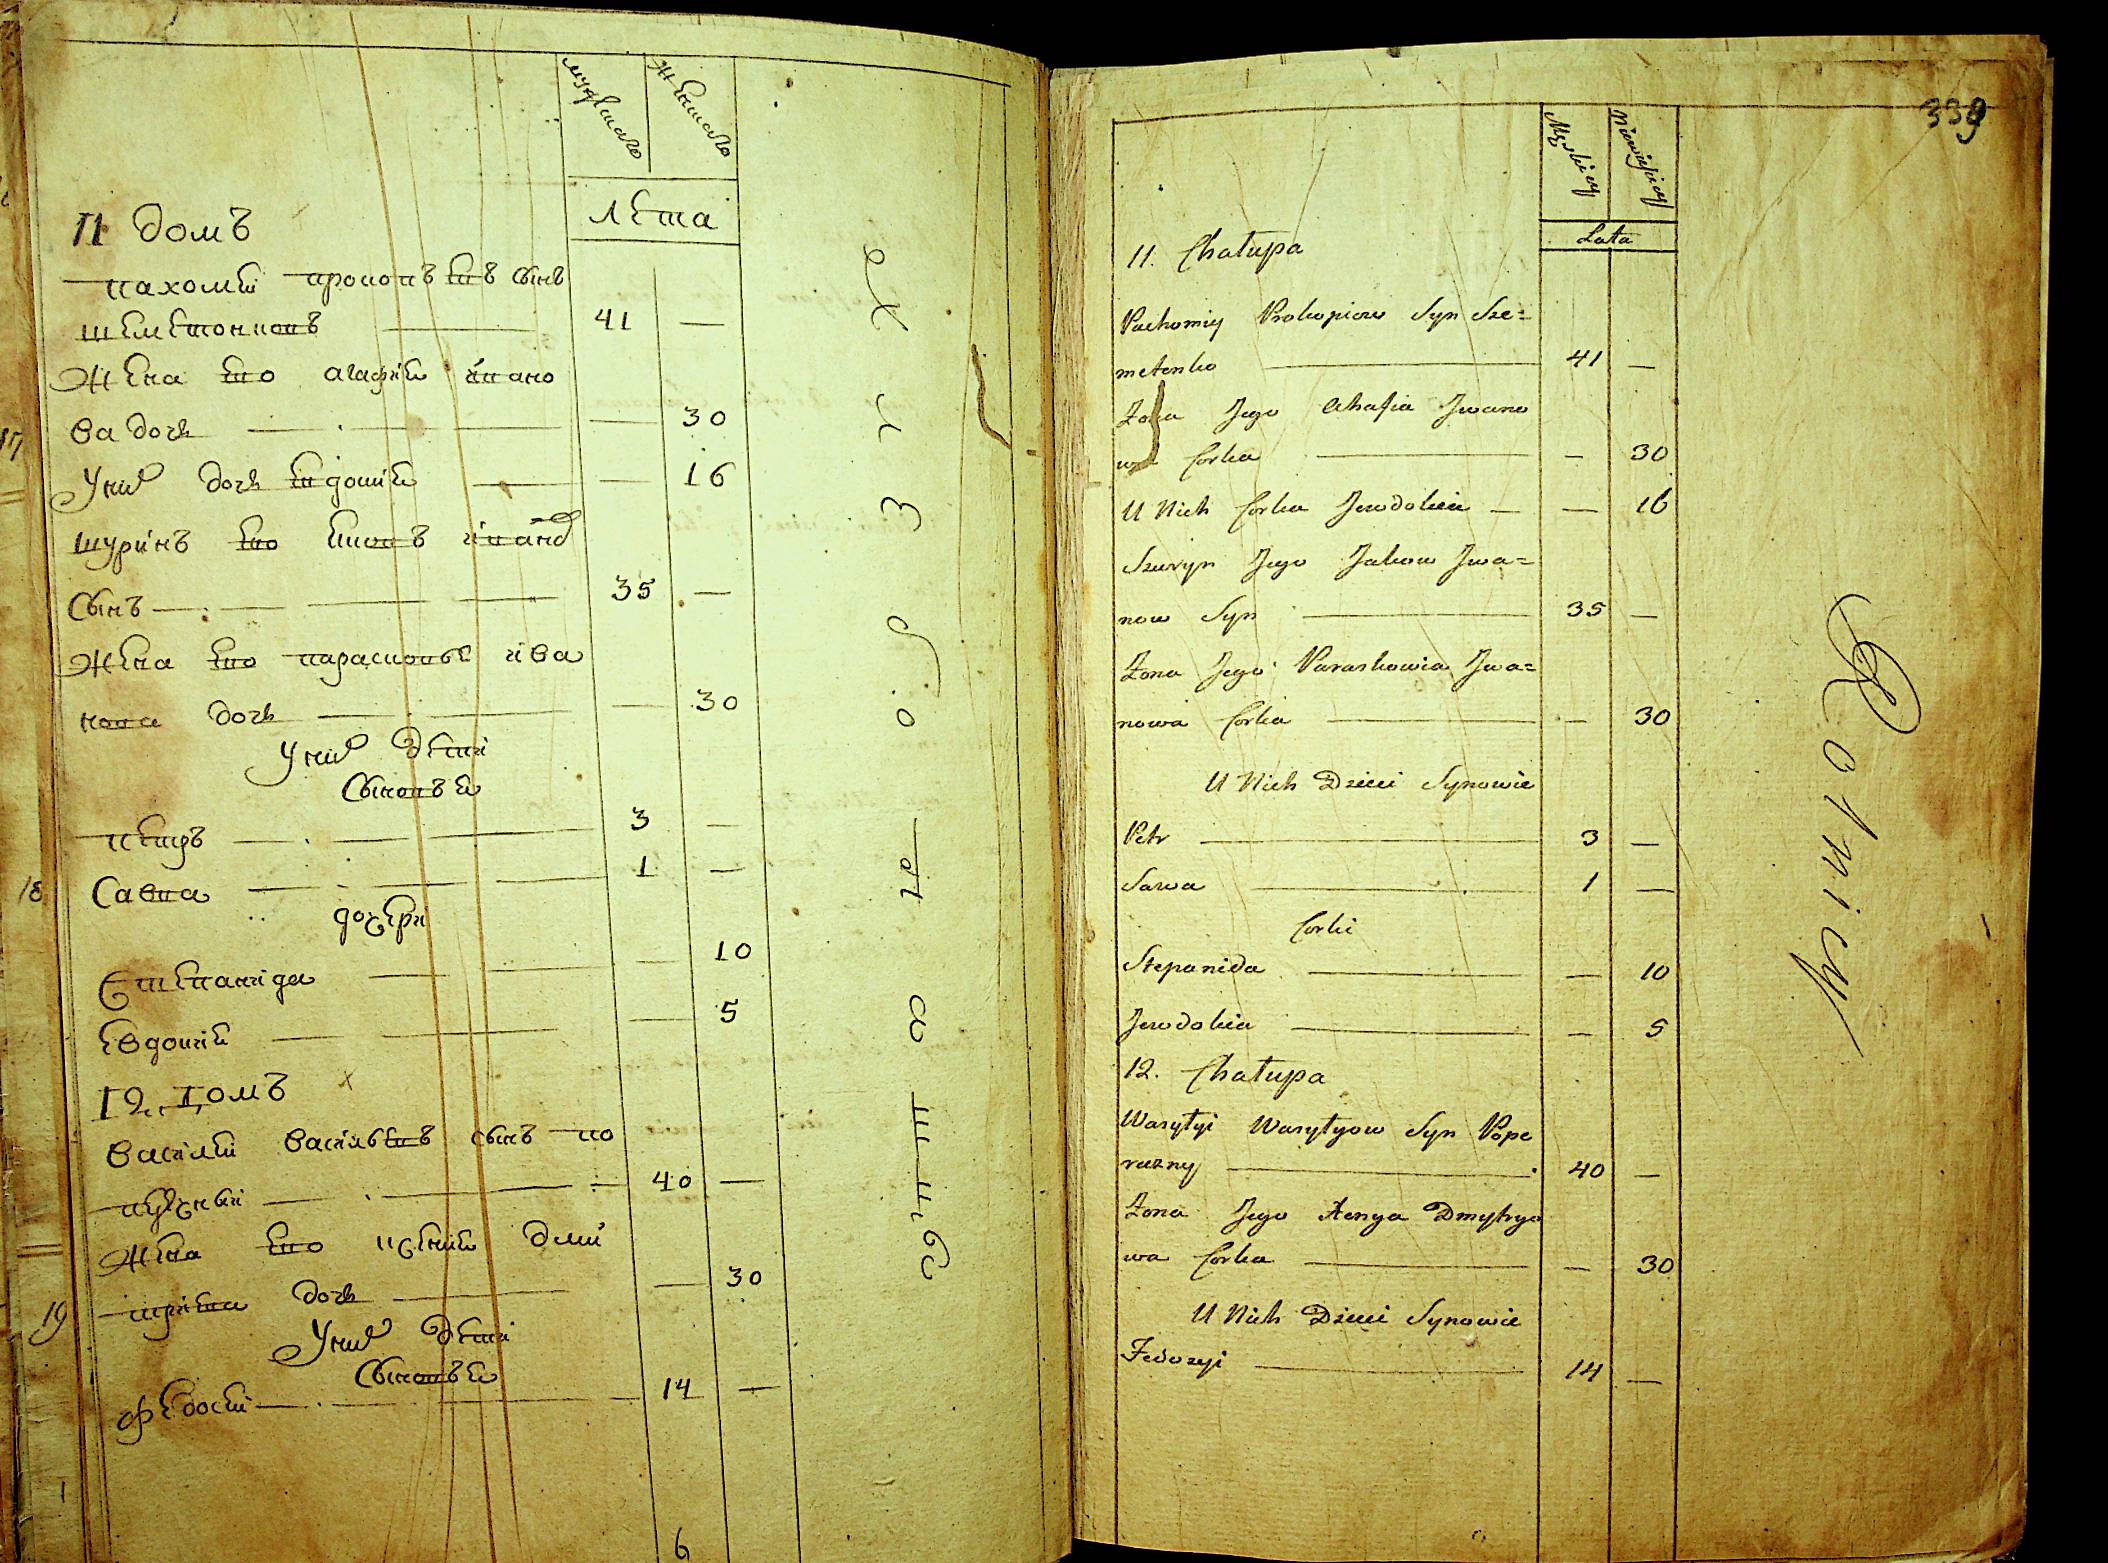 мужеска
женска
лета
11 домъ
пахомѣй прокопьевъ сынъ
шеметонковъ 41 —
жена ево агафия ивано
ва дочь — 30
У них дочь евдокия — 16
шуринъ ево яковъ иванов
сынъ 35 —
жена ево парасковья ива
нова дочь — 30
У них дети
Сыновья
петръ 3 —
Савва 1 —
дочери
Степанида — 10
евдокия — 5
18
12 домъ
Василий Васильевъ сынъ по
40 —
жена ево дми
триева дочь — 30
19
У них дети
Сыновья
федосей 14 —
6
339
Męskiey
Niewieściey
Lata
11. Chałupa
Pachomiy Prokopiow Syn Sze=
metenko 41 —
Zona Jego Ahafia Jwano
wa Corka — 30
U Nich Corka Jewdokia — 16
Szuryn Jego Jakow Jwa=
now Syn 35 —
Zona Jego Paraskowia Jwa=
nowa Corka — 30
U Nich Dzieci Synowie
Petr 3 —
Sawa 1 —
Corki
Stepanida — 10
Jewdokia — 5
12. Chałupa
Wasyłyi Wasyłyow Syn Pope
reczny 40 —
Zona Jego Xenya Dmytryo
wa Corka — 30
U Nich Dzieci Synowie
Fedosyi 14 —
Rolnicy